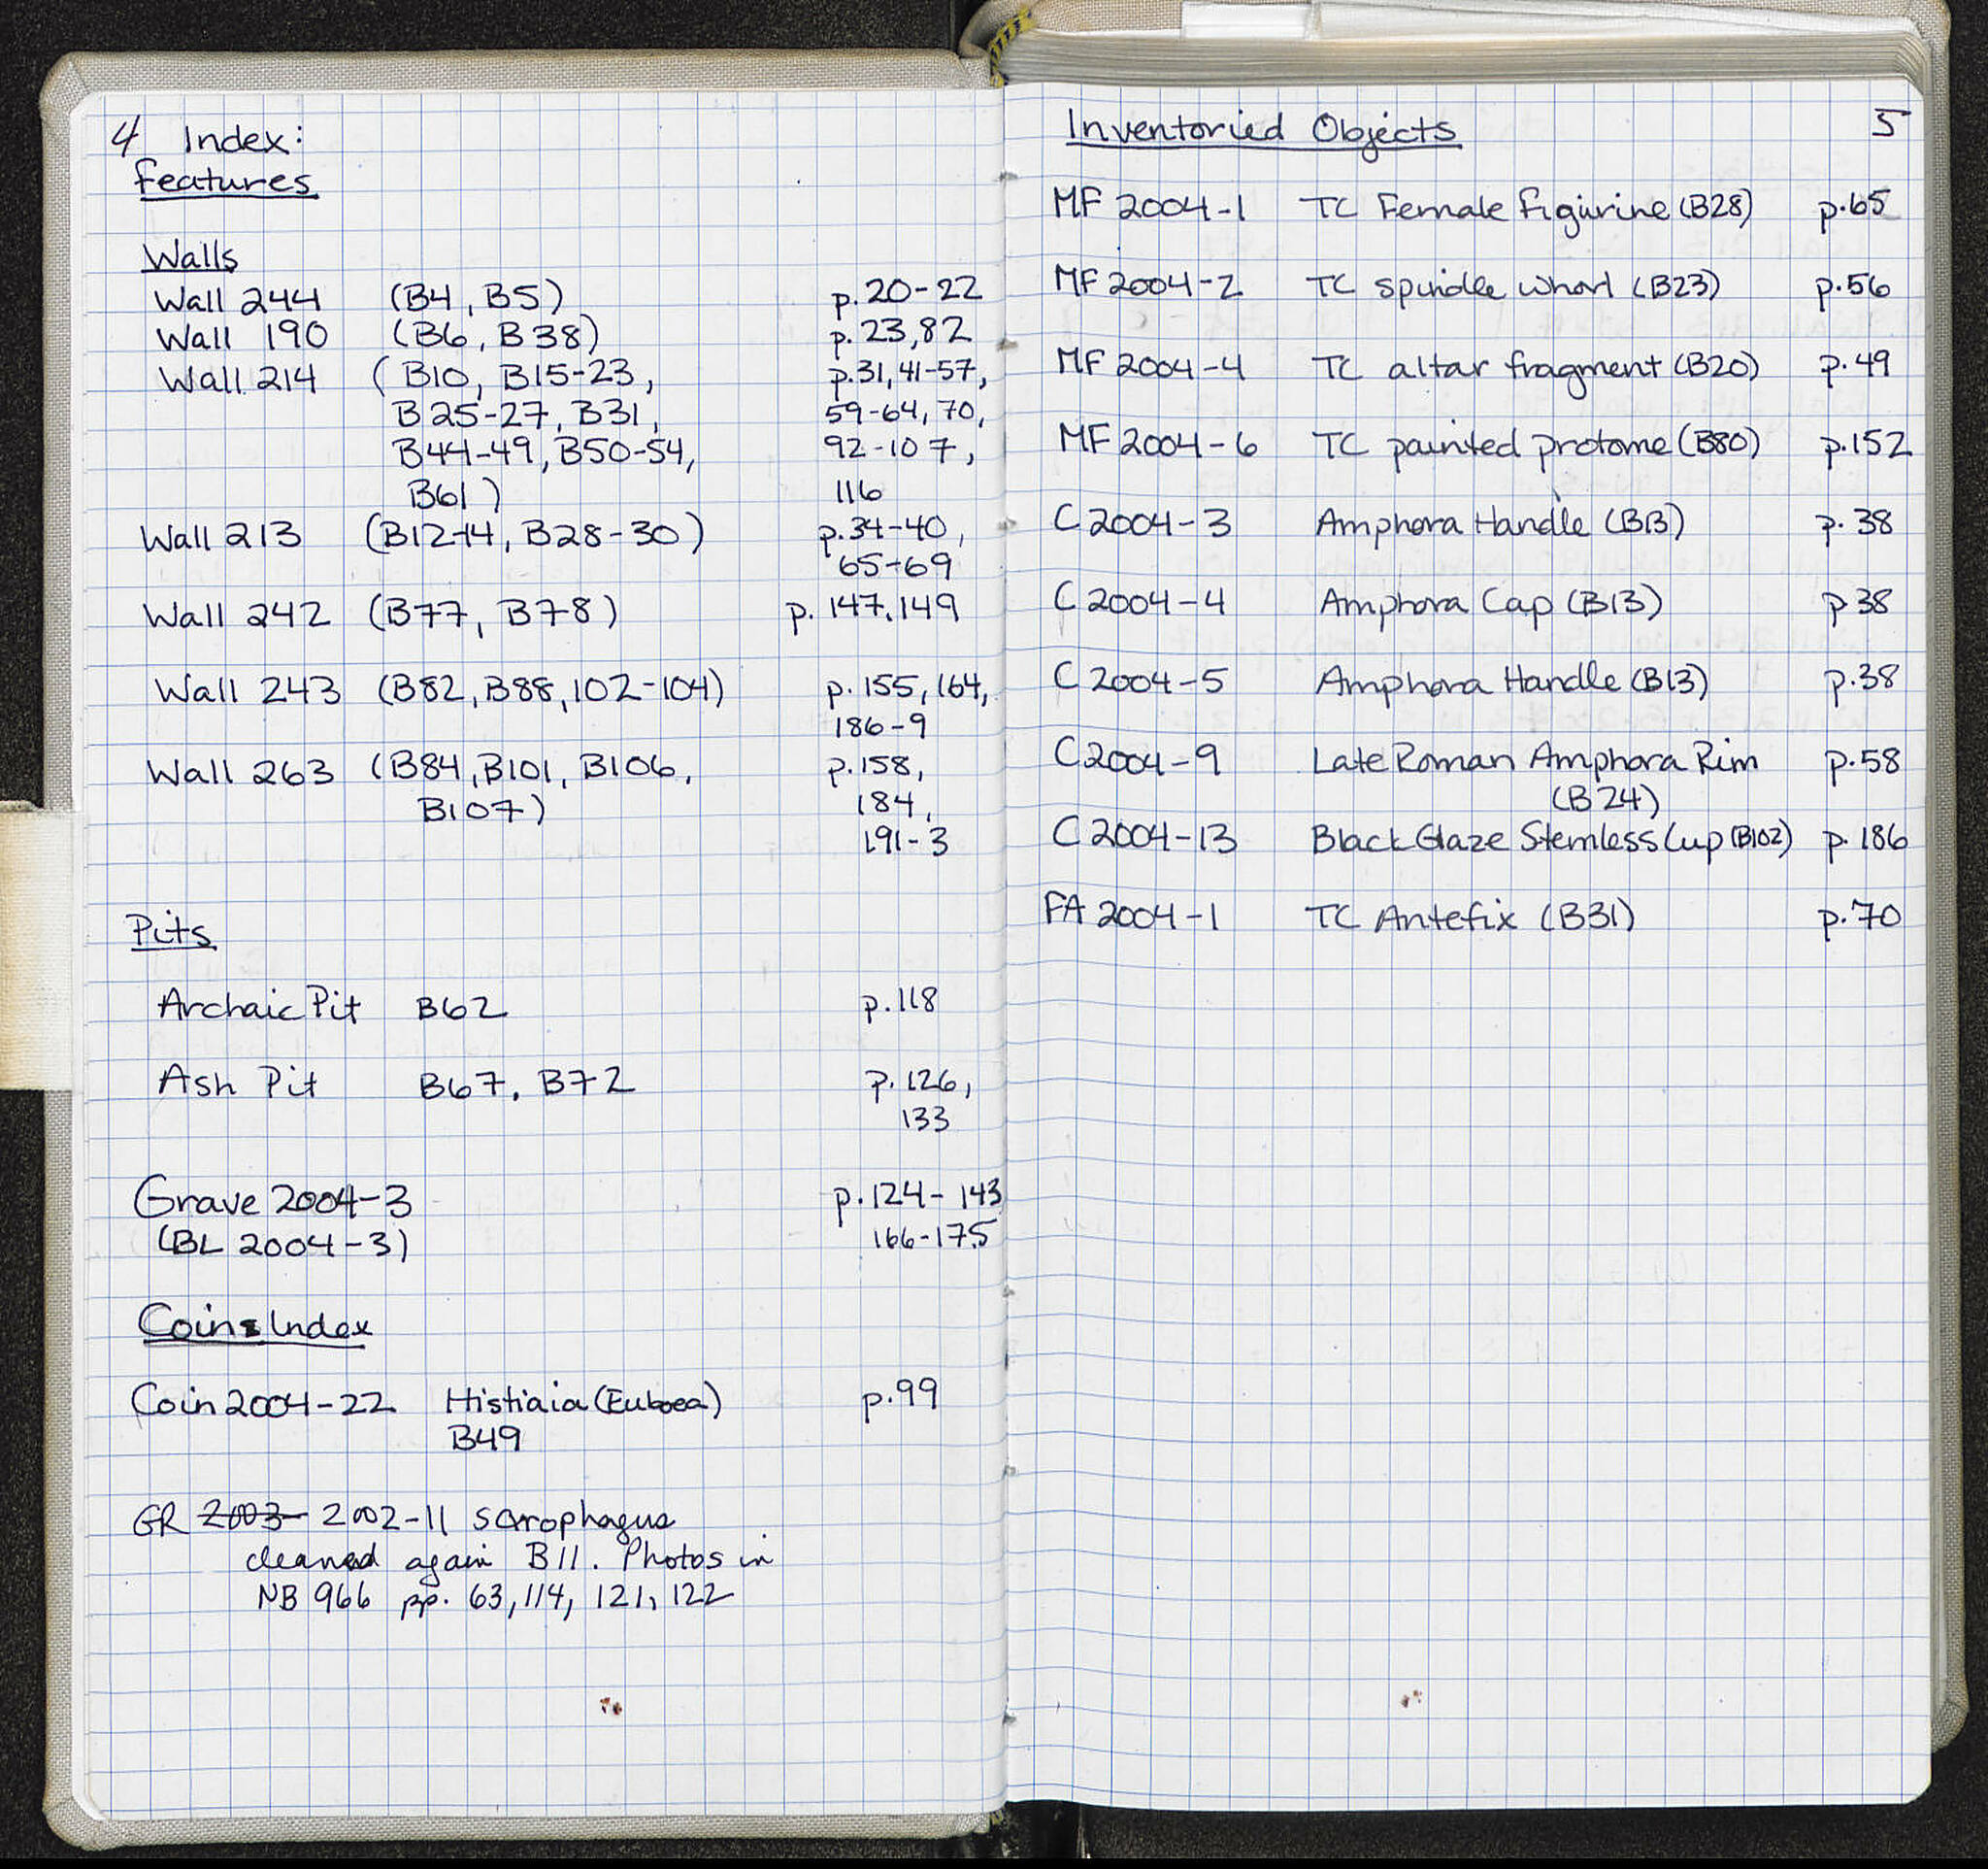 4 Index:
Features
Walls
Wall 244 (B4, B5) p. 20-22
Wall 190 (B6, B38) p. 23, 82
Wall 214 (B10, B15-23, p. 31, 41-57,
B25-27, B31, 59-64, 70,
B44-49, B50-54, 92-107,
B61) 116
Wall 213 (B12-14, B28-30) p. 34-40,
65-69
Wall 242 (B77, B78) p. 147, 149
Wall 243 (B82, B88, 102-104) p. 155, 164,
186-9
Wall 263 (B84, B101, B106, p. 158,
B107) 184,
191-3
Pits
Archaic Pit B62 p. 118
Ash Pit B67, B72 p. 126,
133
Grave 2004-3 p. 124-143
(BL 2004-3) 166-175
Coins Index
Coin 2004-22 Histiaia (Euboea) p. 99
B49
GR 2003- 2002-11 sarophagus
cleaned again B11. Photos in
NB 966 pp. 63, 114, 121, 122
Inventoried Objects 5
MF 2004-1 TC Female figurine (B28) p. 65
MF 2004-2 TC spindle whorl (B23) p. 56
MF 2004-4 TC altar fragment (B20) p. 49
MF 2004-6 TC painted protome (B80) p. 152
C 2004-3 Amphora Handle (B13) p. 38
C 2004-4 Amphora Cap (B13) p 38
C 2004-5 Amphora Handle (B13) p. 38
C 2004-9 Late Roman Amphora Rim p. 58
(B24)
C 2004-13 Black Glaze Stemless Cup (B102) p. 186
FA 2004-1 TC Antefix (B31) p. 70